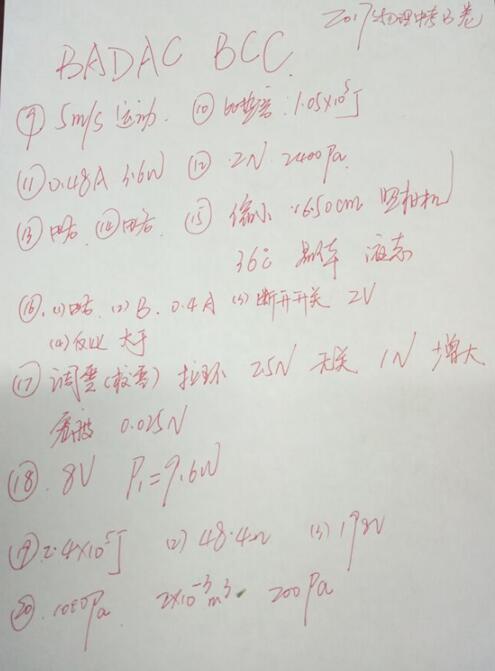 2017物理中考B卷
BADAC BCC
⑨ 5m/s 运动 ⑩ 1.05×10⁵J
⑪ 0.48A 3.6W ⑫ 2N 2400Pa
⑬ 略 ⑭ 略 ⑮ 缩小 16.50cm 照相机
36℃ 晶体 液态
⑯ (1)略 (2) B 0.4A (3) 断开开关 2V
(4) 大于
⑰ 调零(校零) 拉环 2.5N 无关 1N 增大
0.025N
⑱ 8V P₁=9.6W
⑲ 2.4×10⁵J (2) 48.4Ω (3)
⑳ 2×10⁻³m³ 200Pa